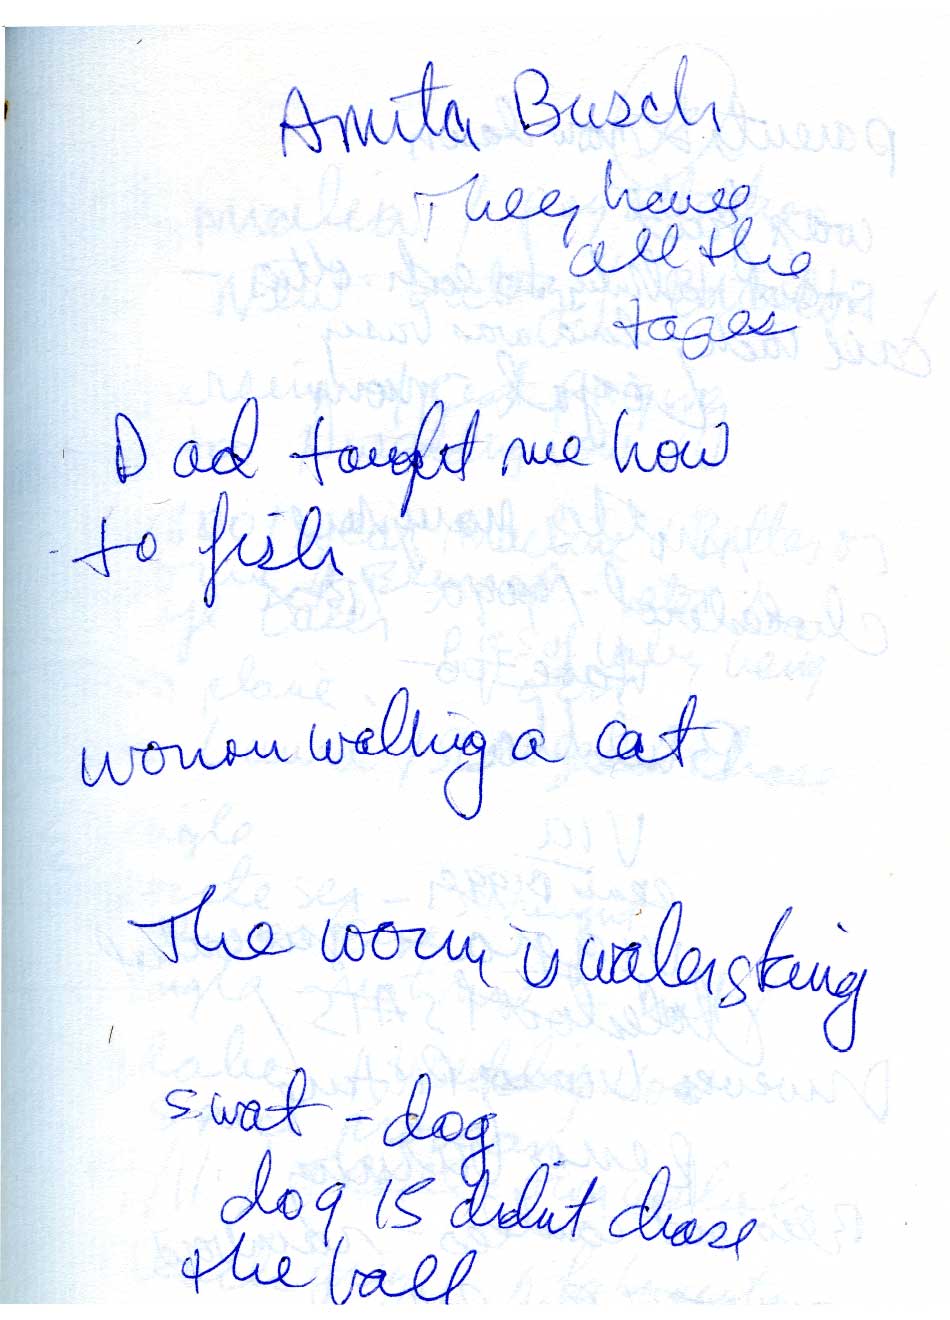 Anita Busch
They have
all the
tages
Dad tought me how
to fish
womon walking a cat
The worm is waterskiing
swat - dog
dog is didn't chase
the ball